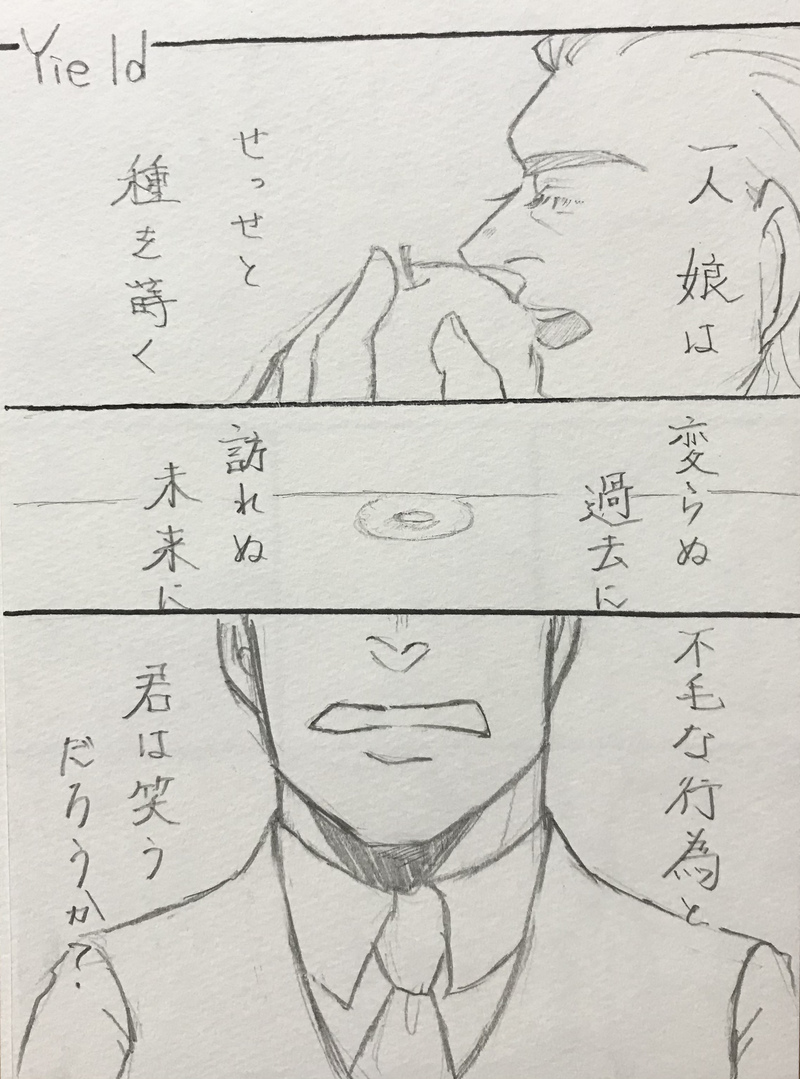 Yield
一人 娘は
せっせと
種を蒔く
変らぬ
過去に
訪れぬ
未来に
不毛な行為と
君は笑う
だろうか?